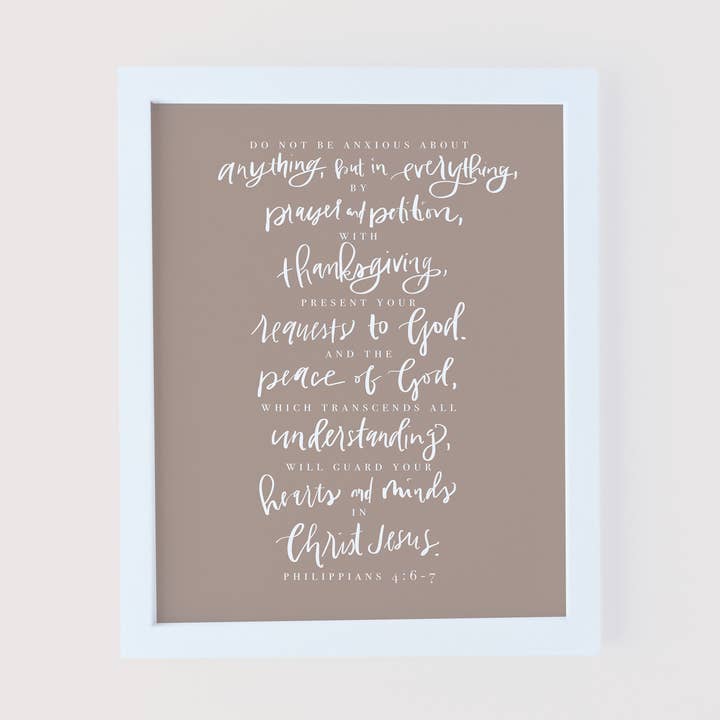 DO NOT BE ANXIOUS ABOUT
anything, but in everything,
BY
prayer and petition,
WITH
thanksgiving,
PRESENT YOUR
requests to God.
AND THE
peace of God,
WHICH TRANSCENDS ALL
understanding,
WILL GUARD YOUR
hearts and minds
IN
Christ Jesus.
PHILIPPIANS 4:6-7